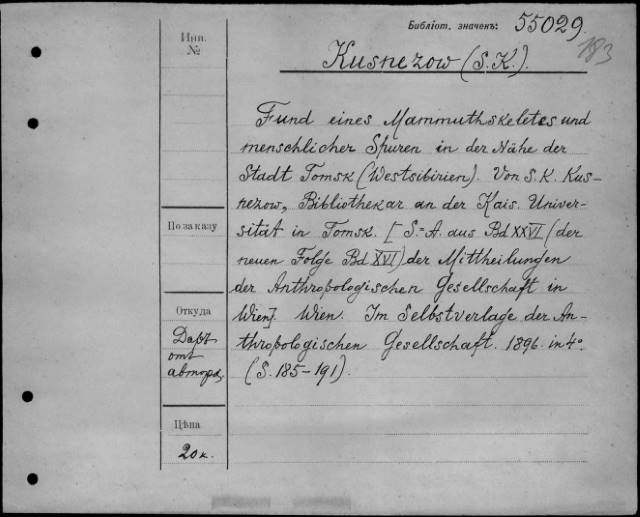 Библіот. значенъ: 55029.
183
Инв. №
Kusnezow (S. K.).
Fund eines Mammuthskeletes und
menschlicher Spuren in der Nähe der
Stadt Tomsk (Westsibirien). Von S. K. Kus-
nezow, Bibliothekar an der Kais. Univer-
sität in Tomsk. [S.=A. aus Bd XXVI (der
neuen Folge Bd XVI) der Mittheilungen
der Anthropologischen Gesellschaft in
Wien]. Wien. Im Selbstverlage der An-
thropologischen Gesellschaft. 1896. in 4°.
(S. 185-191).
По заказу
Откуда
Даръ
отъ
автора.
Цѣна
20 к.